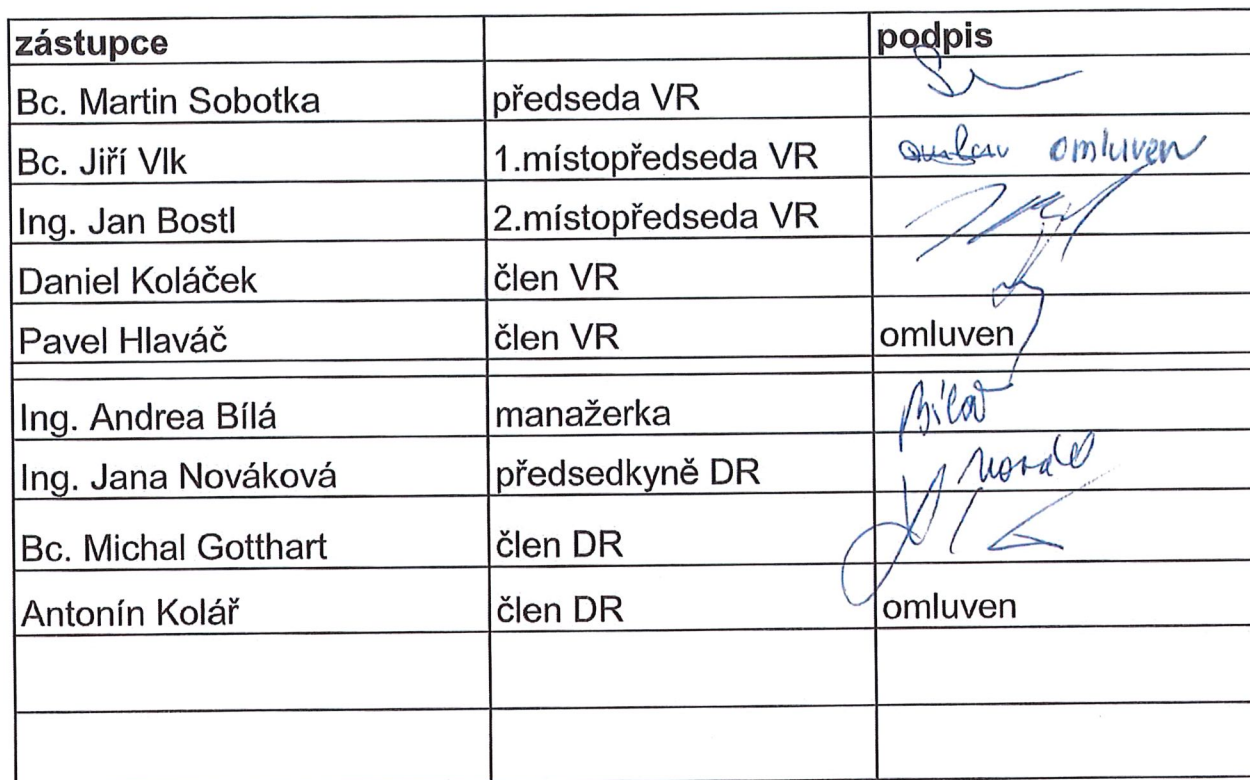 zástupce podpis
Bc. Martin Sobotka předseda VR
Bc. Jiří Vlk 1.místopředseda VR omluven
Ing. Jan Bostl 2.místopředseda VR
Daniel Koláček člen VR
Pavel Hlaváč člen VR omluven
Ing. Andrea Bílá manažerka Bílá
Ing. Jana Nováková předsedkyně DR
Bc. Michal Gotthart člen DR
Antonín Kolář člen DR omluven